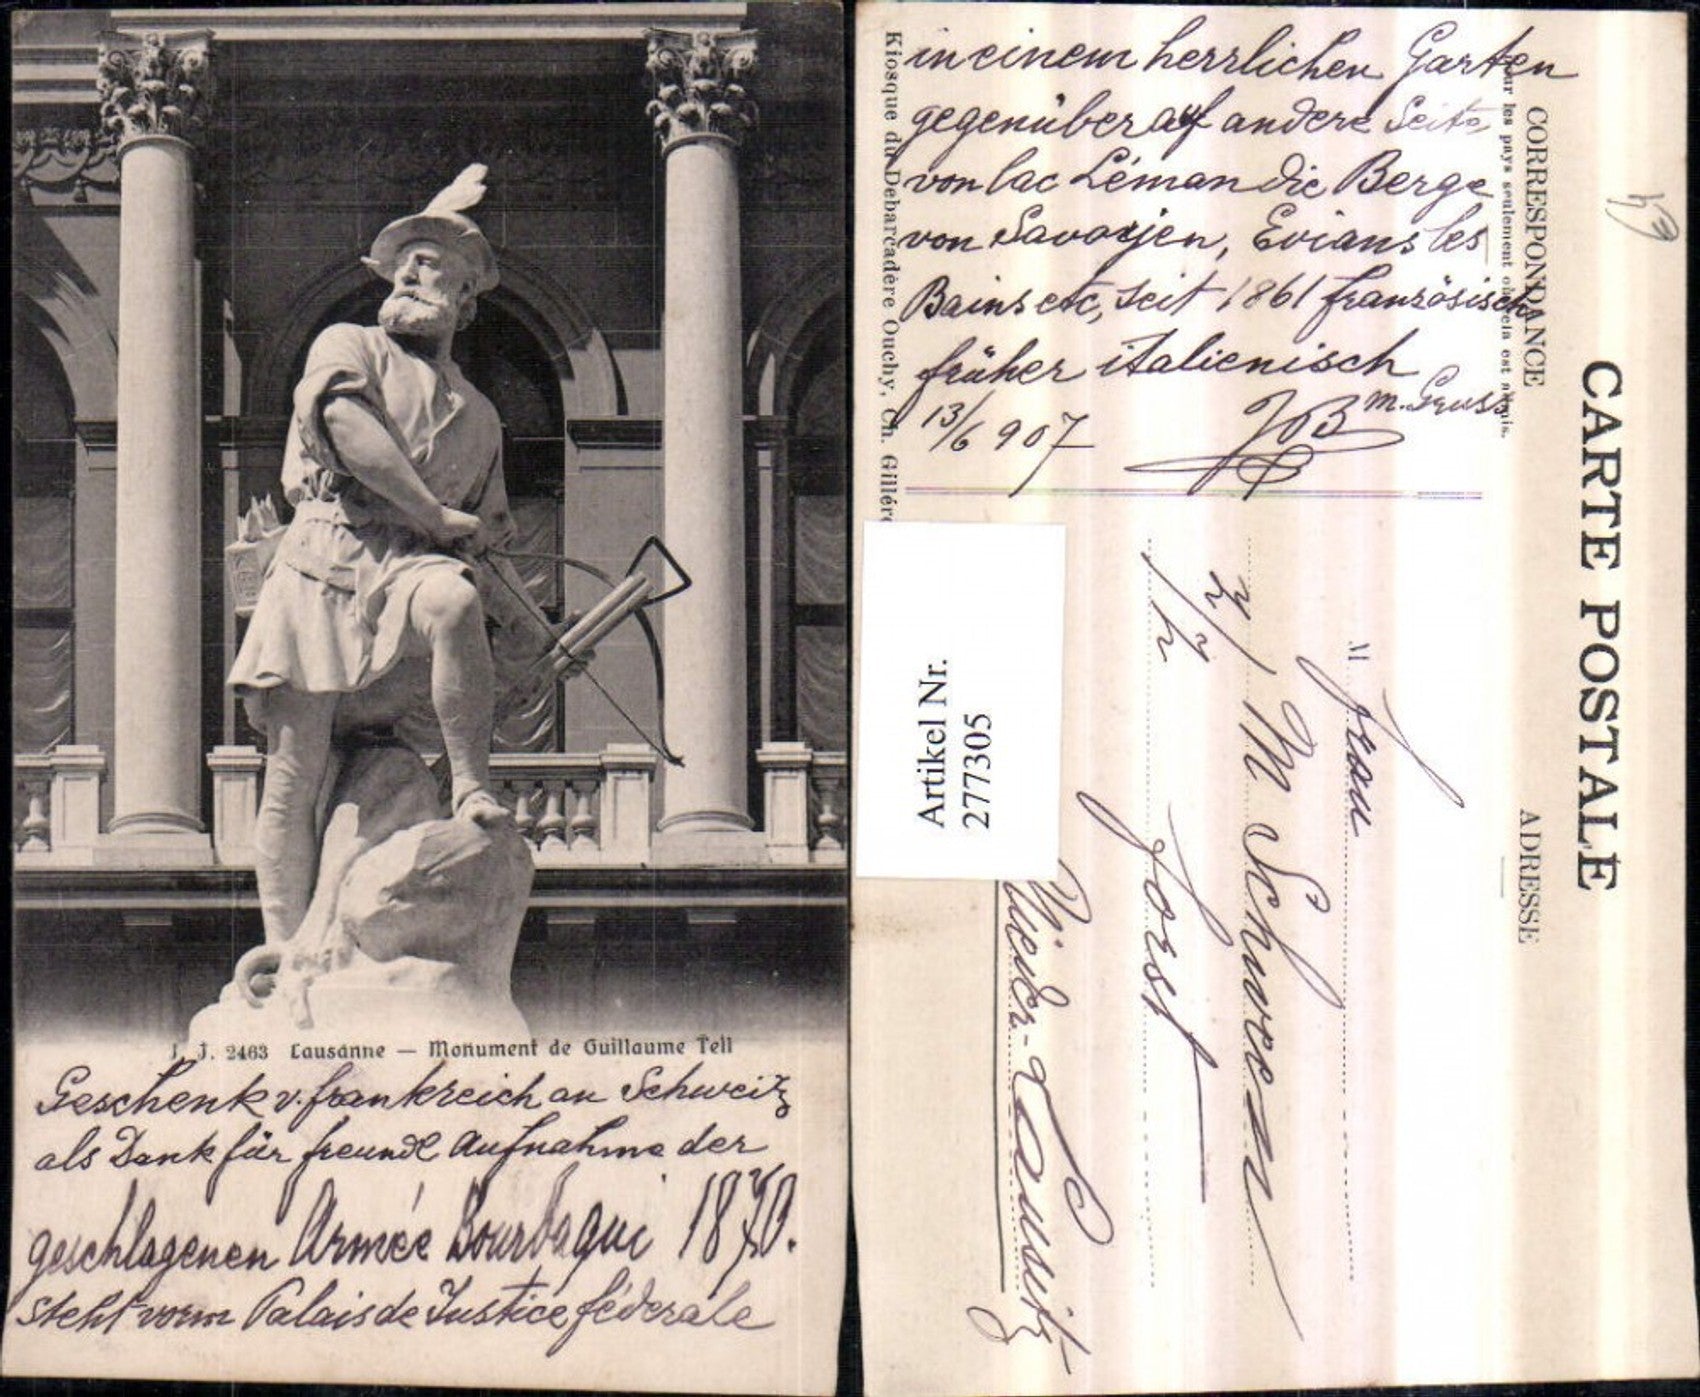 J. J. 2463 Lausanne — Monument de Guillaume Tell
Geschenk v. Frankreich an Schweitz
als Dank für freundl Aufnahme der
geschlagenen Armée Bourbaqui 1870.
steht vorm Palais de Justice féderale
in einem herrlichen Garten
gegenüber auf andere Seite
von lac Léman die Berge
von Savoyen, Evians les
Bains etc, seit 1861 französisch
früher italienisch
13/6 907
JB m. Gruss
Kiosque du Debarcadère Ouchy, Ch.
CARTE POSTALE
CORRESPONDANCE
ADRESSE
pour les pays seulement où cela est admis.
M Jean
M Schween
Forst
Nieder-Lausitz
Artikel Nr.
277305